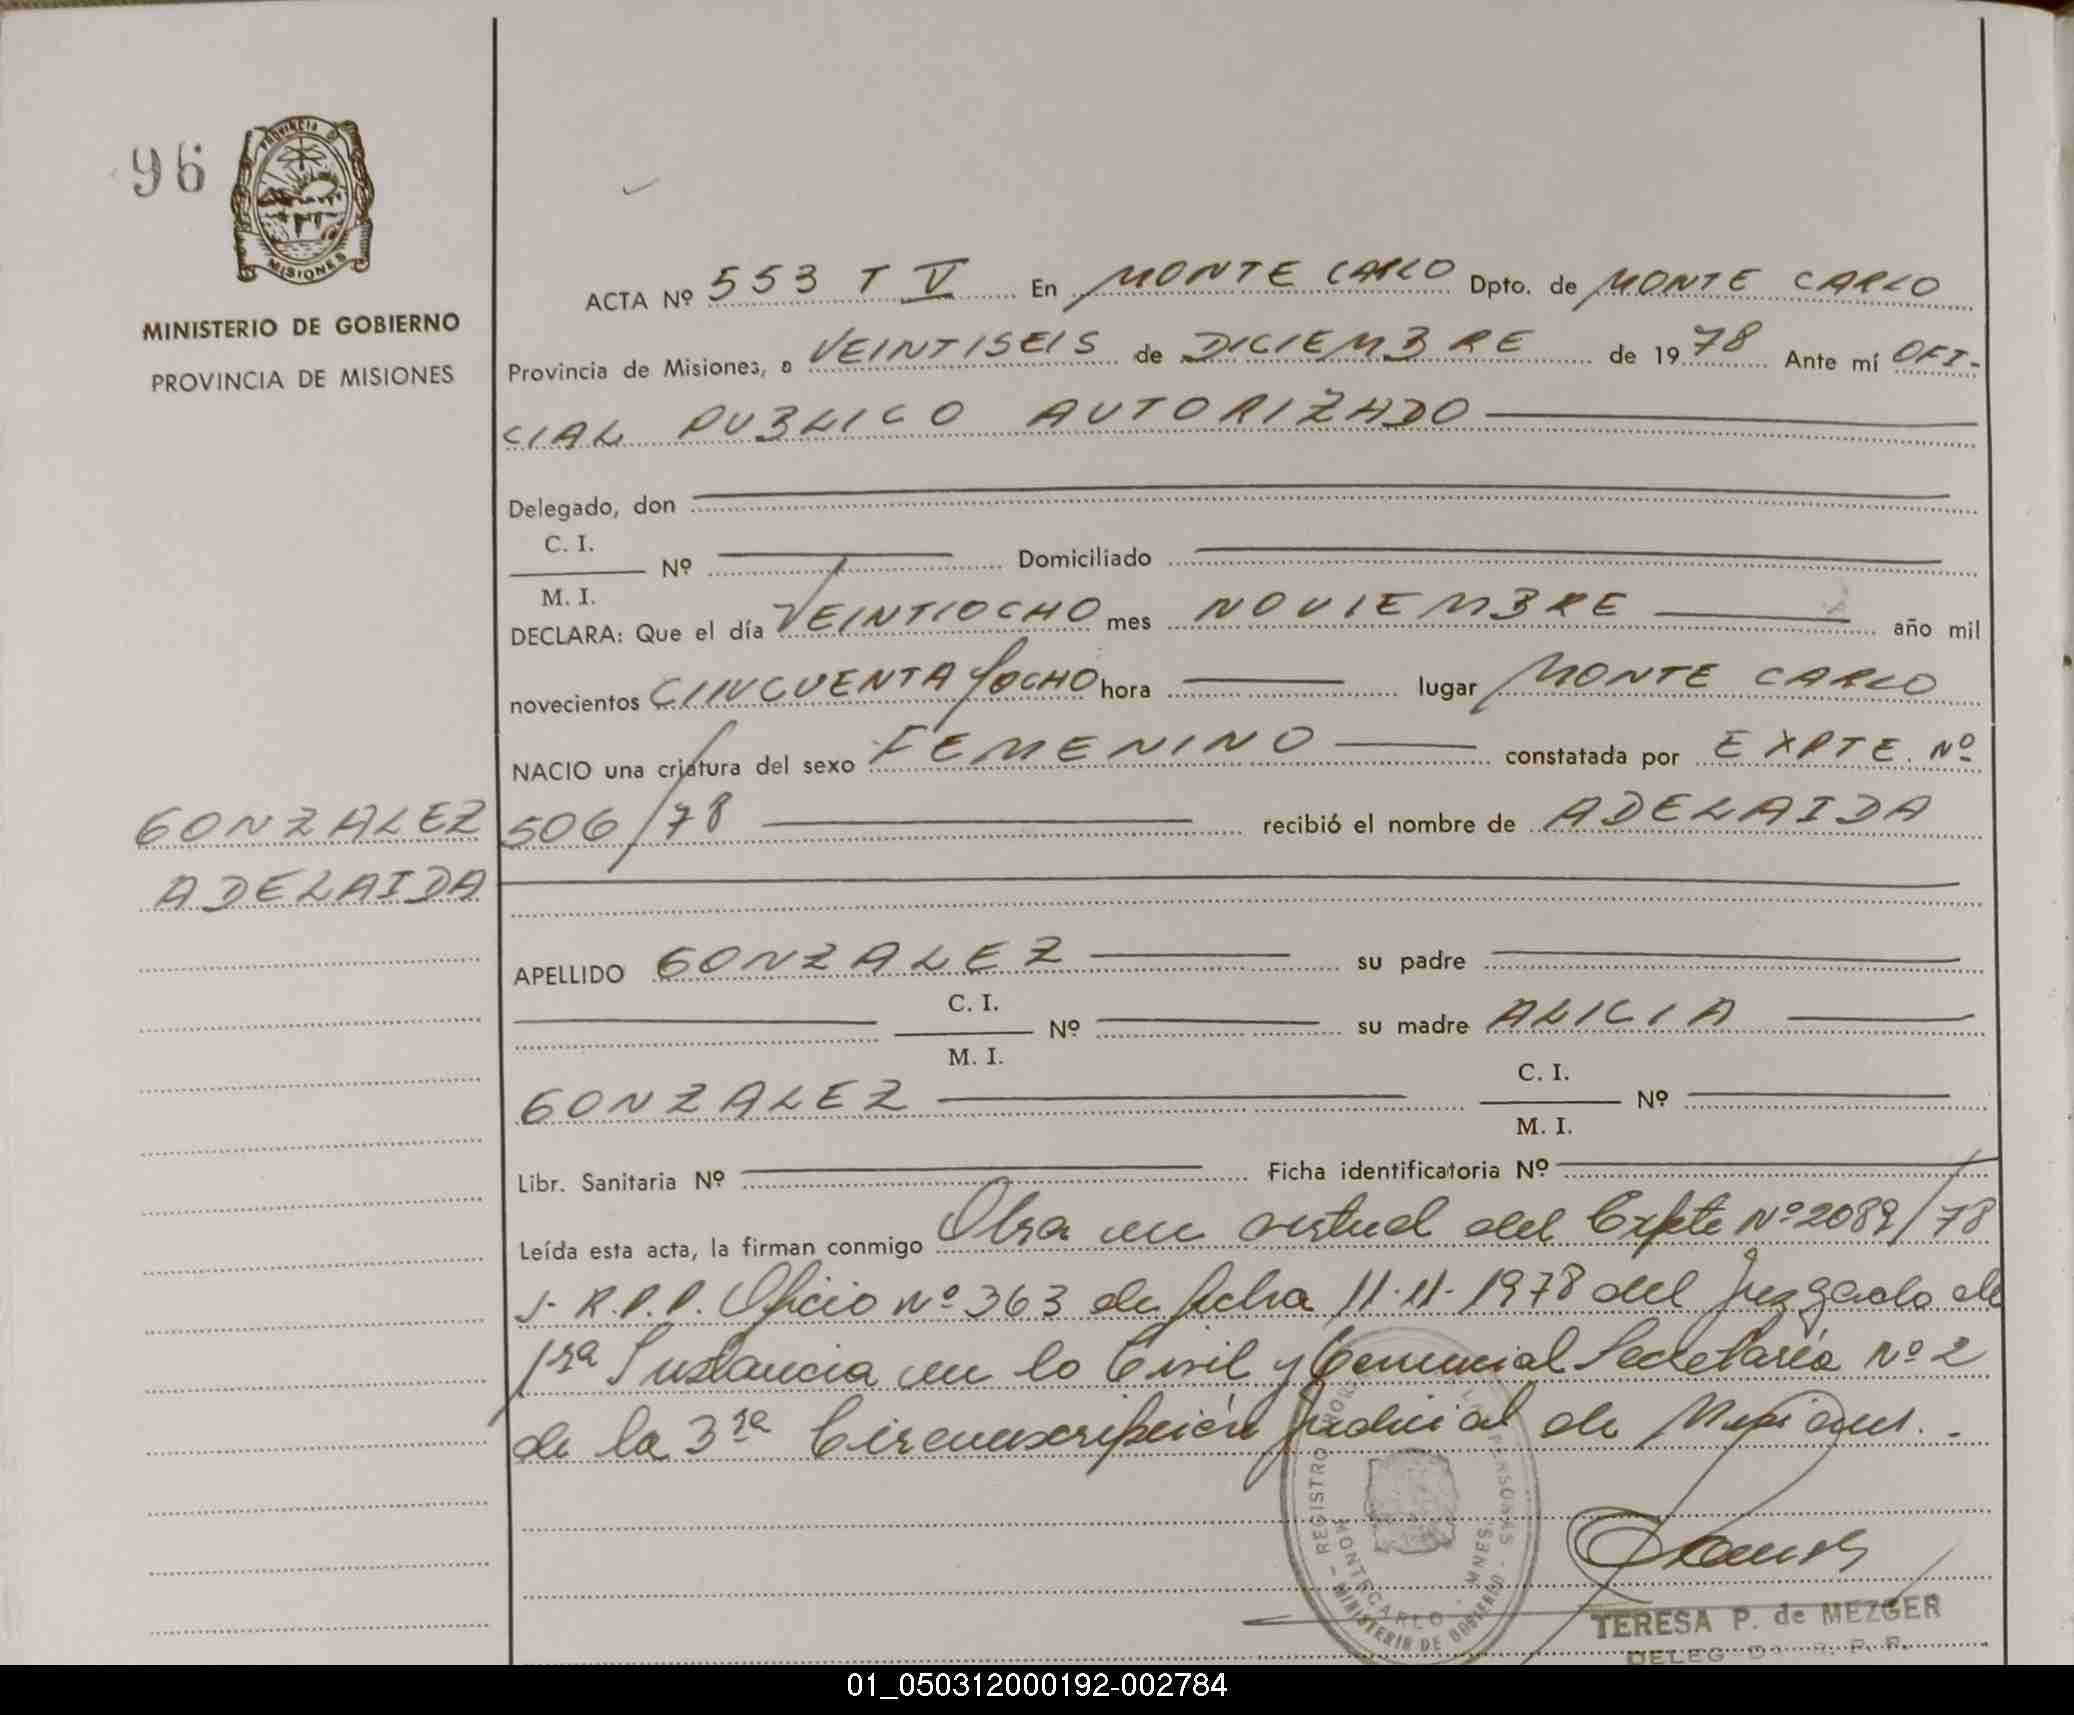 96
PROVINCIA DE
MISIONES
MINISTERIO DE GOBIERNO
PROVINCIA DE MISIONES
ACTA Nº 553 T V En MONTE CARLO Dpto. de MONTE CARLO
Provincia de Misiones, a VEINTISEIS de DICIEMBRE de 1978 Ante mí OFI-
CIAL PUBLICO AUTORIZADO
Delegado, don
C. I.
Nº Domiciliado
M. I.
DECLARA: Que el día VEINTIOCHO mes NOVIEMBRE año mil
novecientos CINCUENTA Y OCHO hora lugar MONTE CARLO
NACIO una criatura del sexo FEMENINO constatada por EXPTE. Nº
GONZALEZ 506/78 recibió el nombre de ADELAIDA
ADELAIDA
APELLIDO GONZALEZ su padre
C. I.
Nº su madre ALICIA
M. I.
C. I.
GONZALEZ Nº
M. I.
Libr. Sanitaria Nº Ficha identificatoria Nº
Leída esta acta, la firman conmigo Obra en virtud del Expte Nº 2089/78
J- R.P.P. Oficio nº 363 de fecha 11-11-1978 del Juzgado de
1ra Instancia en lo Civil y Comercial Secretaría Nº 2
de la 3ra Circunscripción Judicial de Misiones.-
REGISTRO PERSONAS
MONTECARLO - MNES.
MINISTERIO DE GOBIERNO
TERESA P. de MEZGER
DELEG R. P. P.
01_050312000192-002784